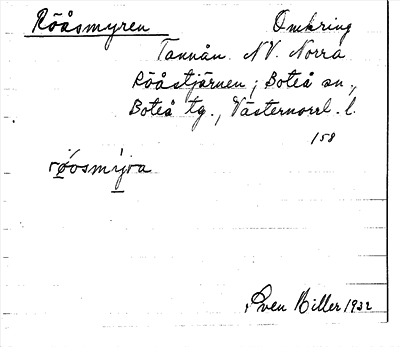 Rööåsmyren Omkring
Tannån. NV. Norra
Rööåstjärnen; Boteå sn.,
Boteå tg., Västernorrl. l.
158
røosmyra
Sven Miller 1932